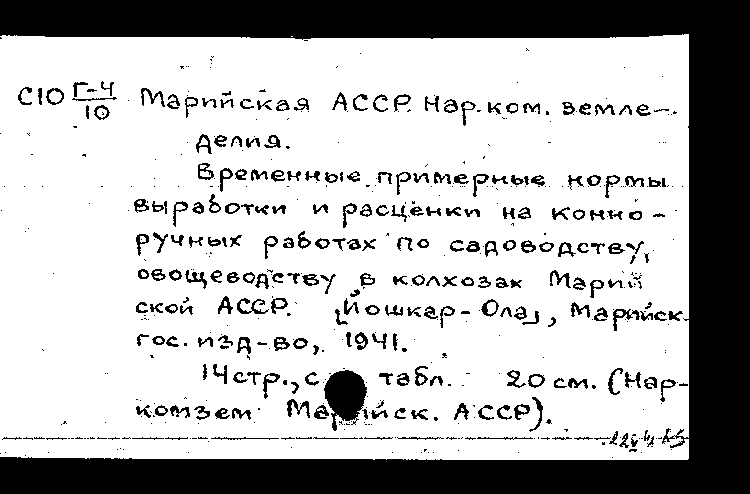 С10 Г-4/10 Марийская АССР. Нар.ком. земле-
делия.
Временные примерные нормы
выработки и расценки на конно-
ручных работах по садоводству,
овощеводству в колхозах Марий
ской АССР. [Йошкар-Ола], Марийск.
гос. изд-во, 1941.
14 стр., с табл. 20 см. (Нар-
комзем Марийск. АССР).